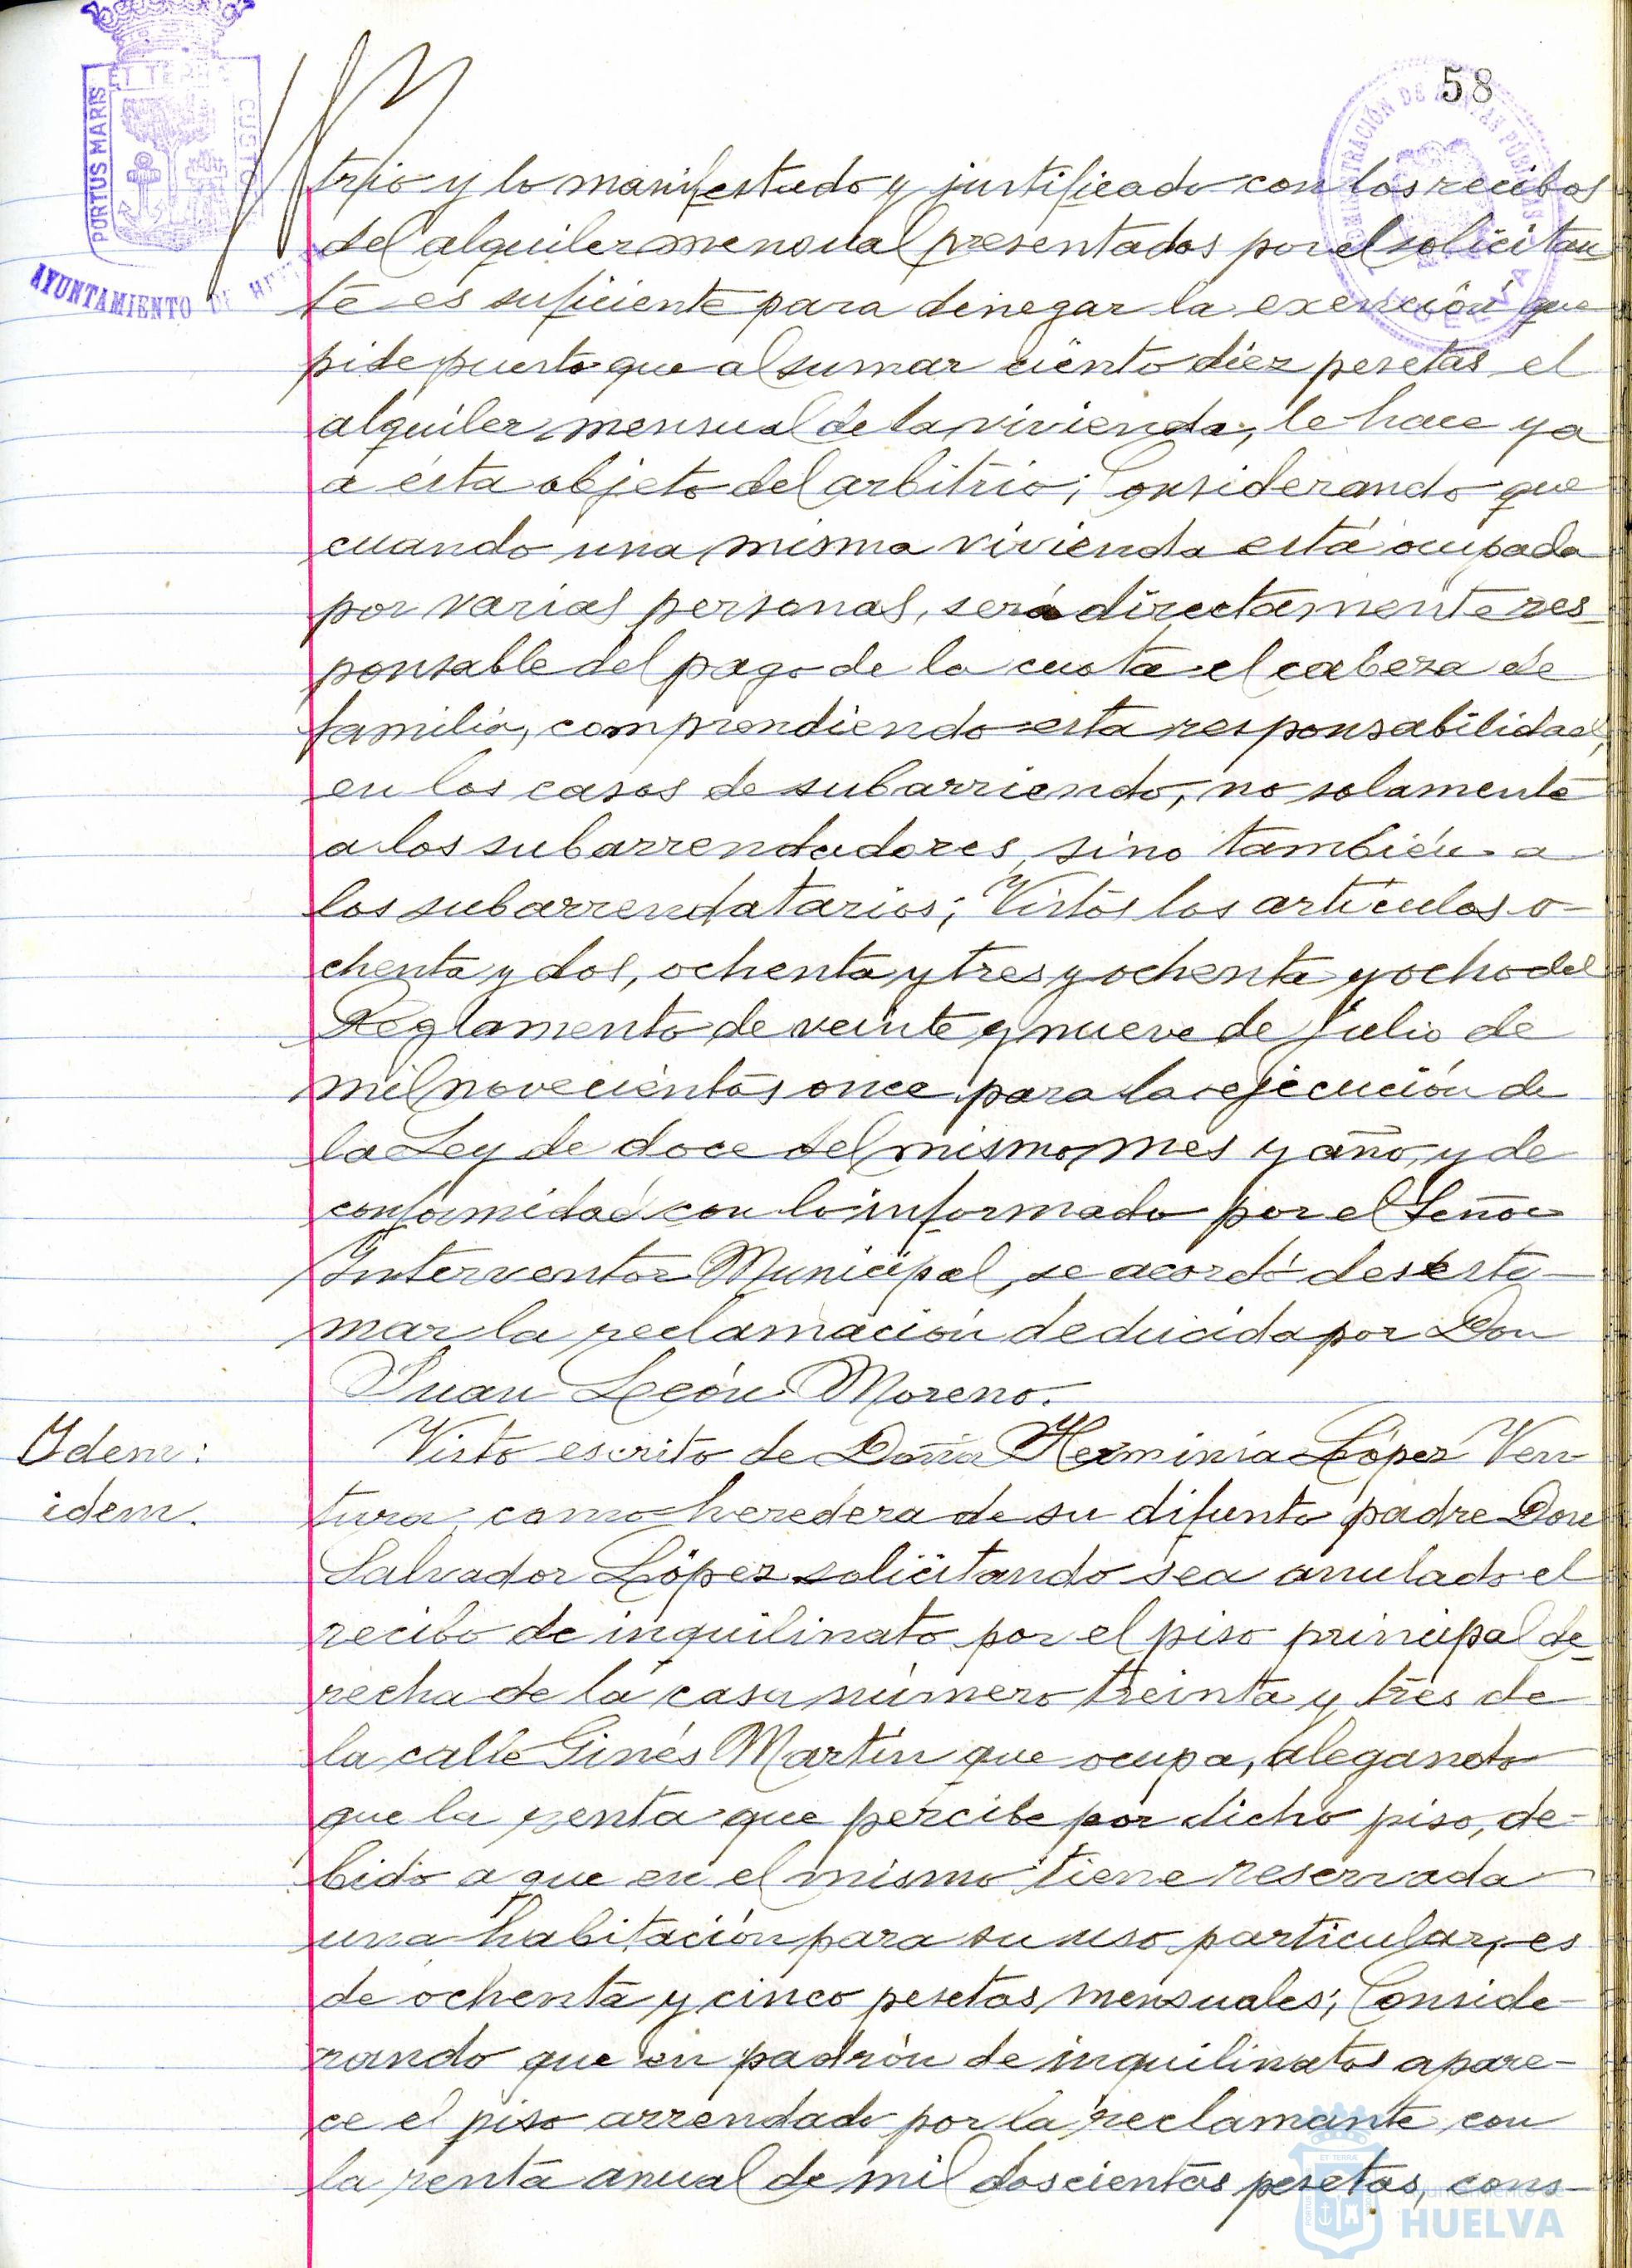 58
PORTUS MARIS ET TERRAE CUSTO
AYUNTAMIENTO DE HUE
trio y lo manifestado y justificado con los recibos
del alquiler mensual presentados por el solicitan
te es suficiente para denegar la exención que
pide puesto que al sumar ciento diez pesetas el
alquiler mensual de la vivienda, le hace ya
a ésta objeto del arbitrio; Considerando que
cuando una misma vivienda está ocupada
por varias personas, será directamente res-
ponsable del pago de la cuota el cabeza de
familia, comprendiendo esta responsabilidad,
en los casos de subarriendo, no solamente
a los subarrendadores, sino también a
los subarrendatarios; Vistos los artículos o-
chenta y dos, ochenta y tres y ochenta y ocho del
Reglamento de veinte y nueve de julio de
mil novecientos once para la ejecución de
la Ley de doce del mismo mes y año, y de
conformidad con lo informado por el Señor
Interventor Municipal, se acordó desesti-
mar la reclamación deducida por Don
Juan León Moreno.
Idem:
idem.
Visto escrito de Doña Herminia López Ven
tura como heredera de su difunto padre Don
Salvador López solicitando sea anulado el
recibo de inquilinato por el piso principal de-
recha de la casa número treinta y tres de
la calle Ginés Martín que ocupa, alegando
que la renta que percibe por dicho piso, de-
bido a que en el mismo tiene reservada
una habitación para su uso particular, es
de ochenta y cinco pesetas mensuales; Conside-
rando que en padrón de inquilinatos apare-
ce el piso arrendado por la reclamante con
la renta anual de mil doscientas pesetas, cons-
HUELVA